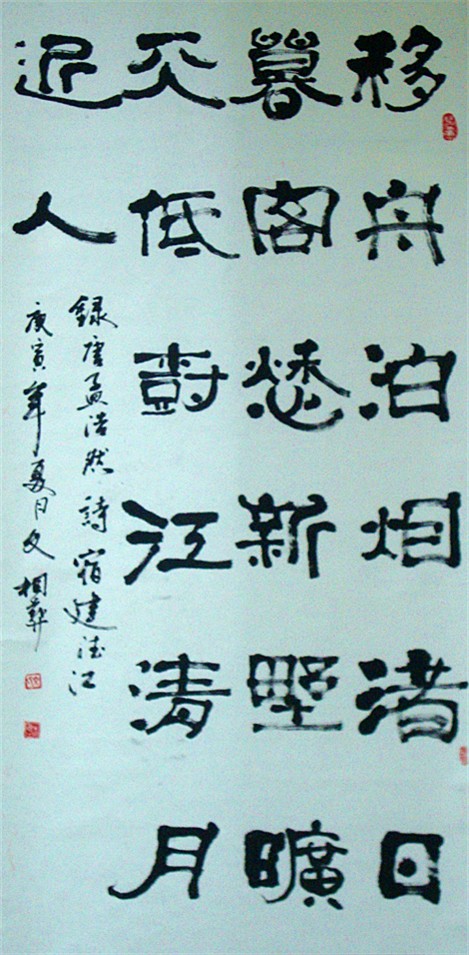 移舟泊烟渚日
暮客愁新野曠
天低樹江清月
近人
録唐孟浩然詩宿建德江
庚寅年夏日文